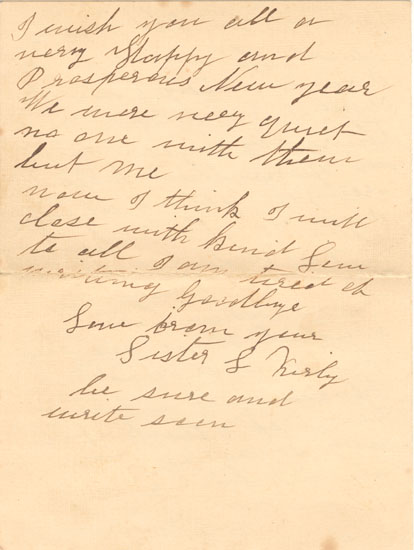 I wish you all a
very Happy and
Prosperous New year
We were very quiet
no one with them
but me
now I think I will
close with kind Love
to all I am tired of
writing Goodbye
Love from your
Sister S Kirby
be sure and
write soon